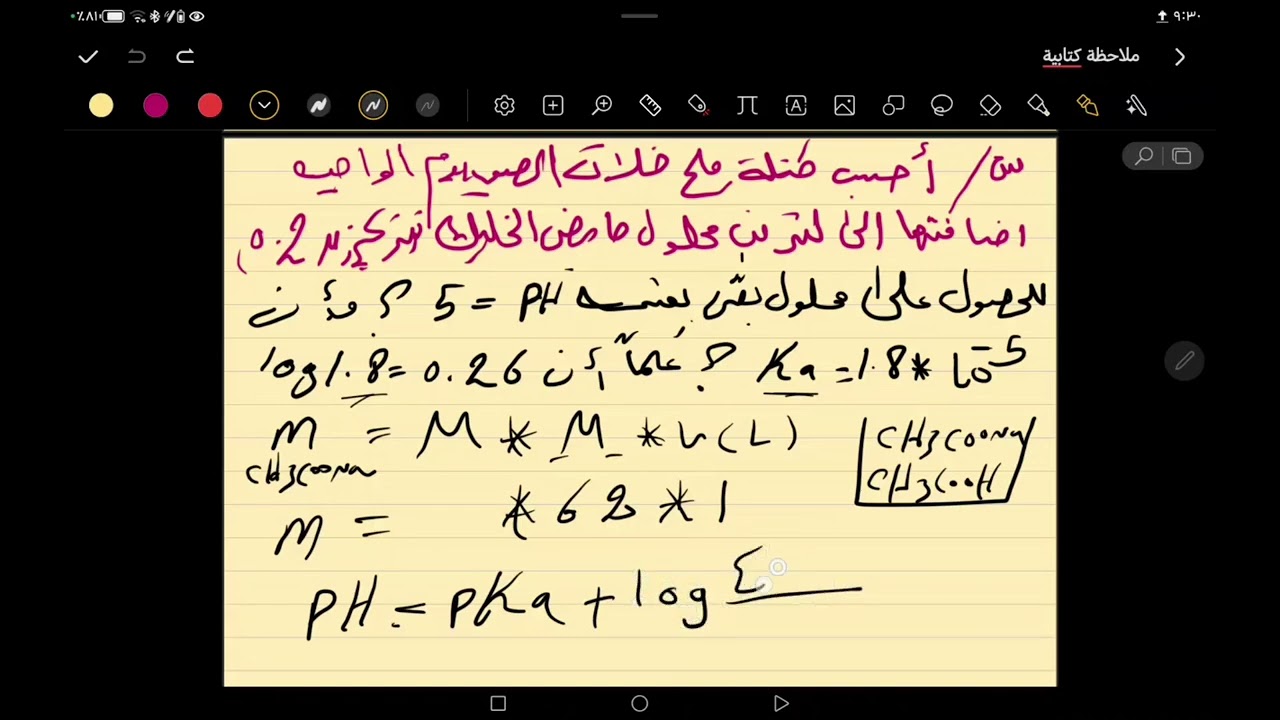 ٪٨١
٩:٣٠
ملاحظة كتابية
س/ أحسب كتلة ملح خلات الصوديوم الواجب
اضافتها الى لتر من محلول حامض الخليك تركيزه 0.2
للحصول على محلول بفر بقيمة PH = 5 ؟ وأن
log 1.8 = 0.26 علماً أن ؟ Ka = 1.8 * 10-5
m = M * M * V(L)
CH3COONa
CH3COONa
CH3COOH
m = * 62 * 1
PH = PKa + log